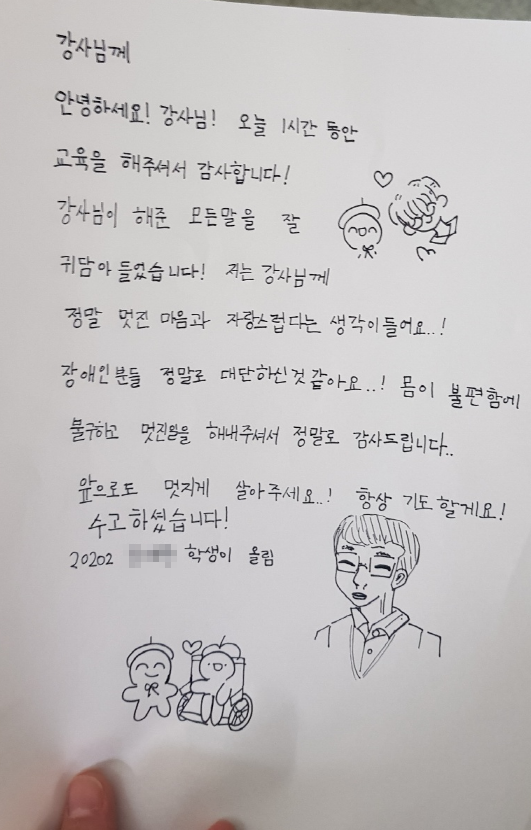 강사님께
안녕하세요! 강사님! 오늘 1시간 동안
교육을 해주셔서 감사합니다!
강사님이 해준 모든말을 잘
귀담아 들었습니다! 저는 강사님께
정말 멋진 마음과 자랑스럽다는 생각이들어요..!
장애인분들 정말로 대단하신것같아요..! 몸이 불편함에
불구하고 멋진일을 해내주셔서 정말로 감사드립니다..
앞으로도 멋지게 살아주세요..! 항상 기도할게요!
수고하셨습니다!
20202 학생이 올림